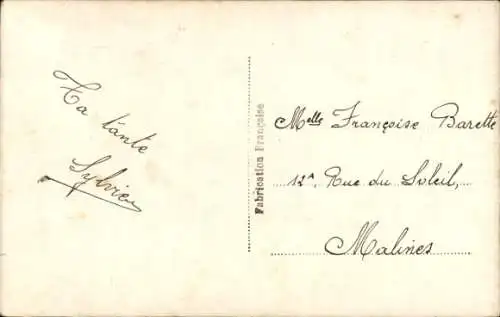 Ta tante
Sylvie
Fabrication Française
Melle Françoise Barette
12A Rue du Soleil,
Malines